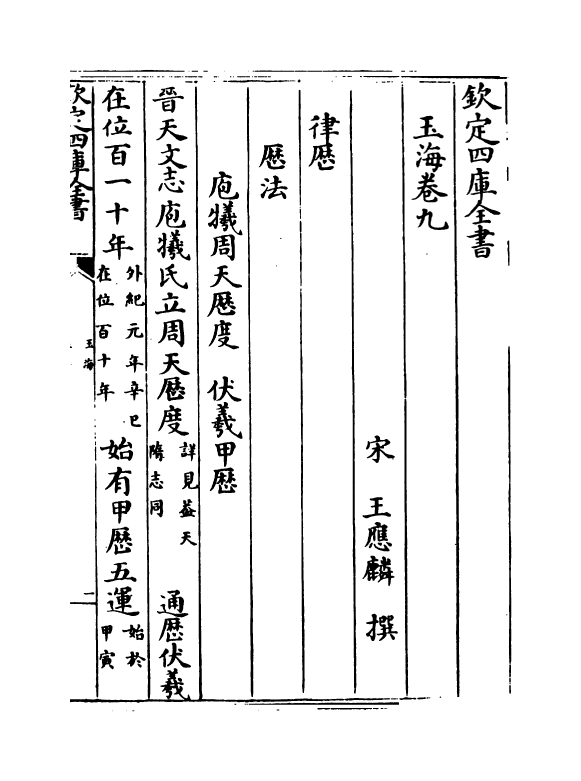 欽定四庫全書
玉海卷九
宋　王應麟　撰
律歷
歷法
庖犧周天歷度　伏羲甲歷
晉天文志庖犧氏立周天歷度詳見蓋天隋志同　通歷伏羲
在位百一十年外紀元年辛巳在位百十年　始有甲歷五運始於甲寅
欽定四庫全書
玉海
二